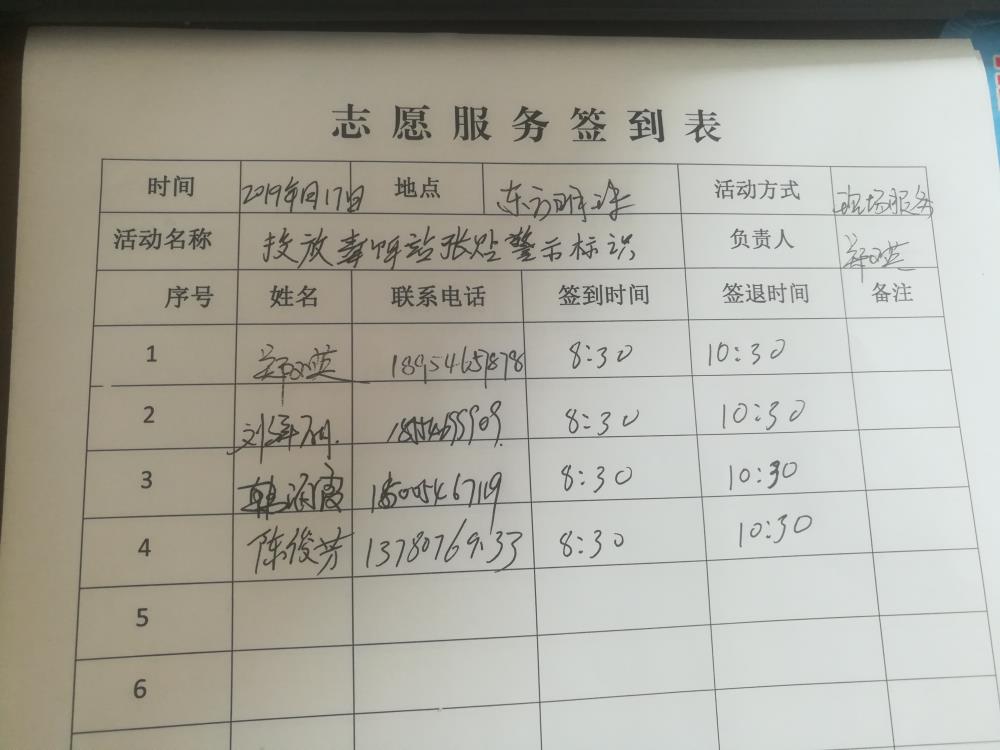 志愿服务签到表
时间 2019年1月17日 地点 东方明珠 活动方式 现场服务
活动名称 投放毒饵站张贴警示标识 负责人 郑英
序号 姓名 联系电话 签到时间 签退时间 备注
1 18954657878 8:30 10:30
2 8:30 10:30
3 8:30 10:30
4 陈俊芳 8:30 10:30
5
6